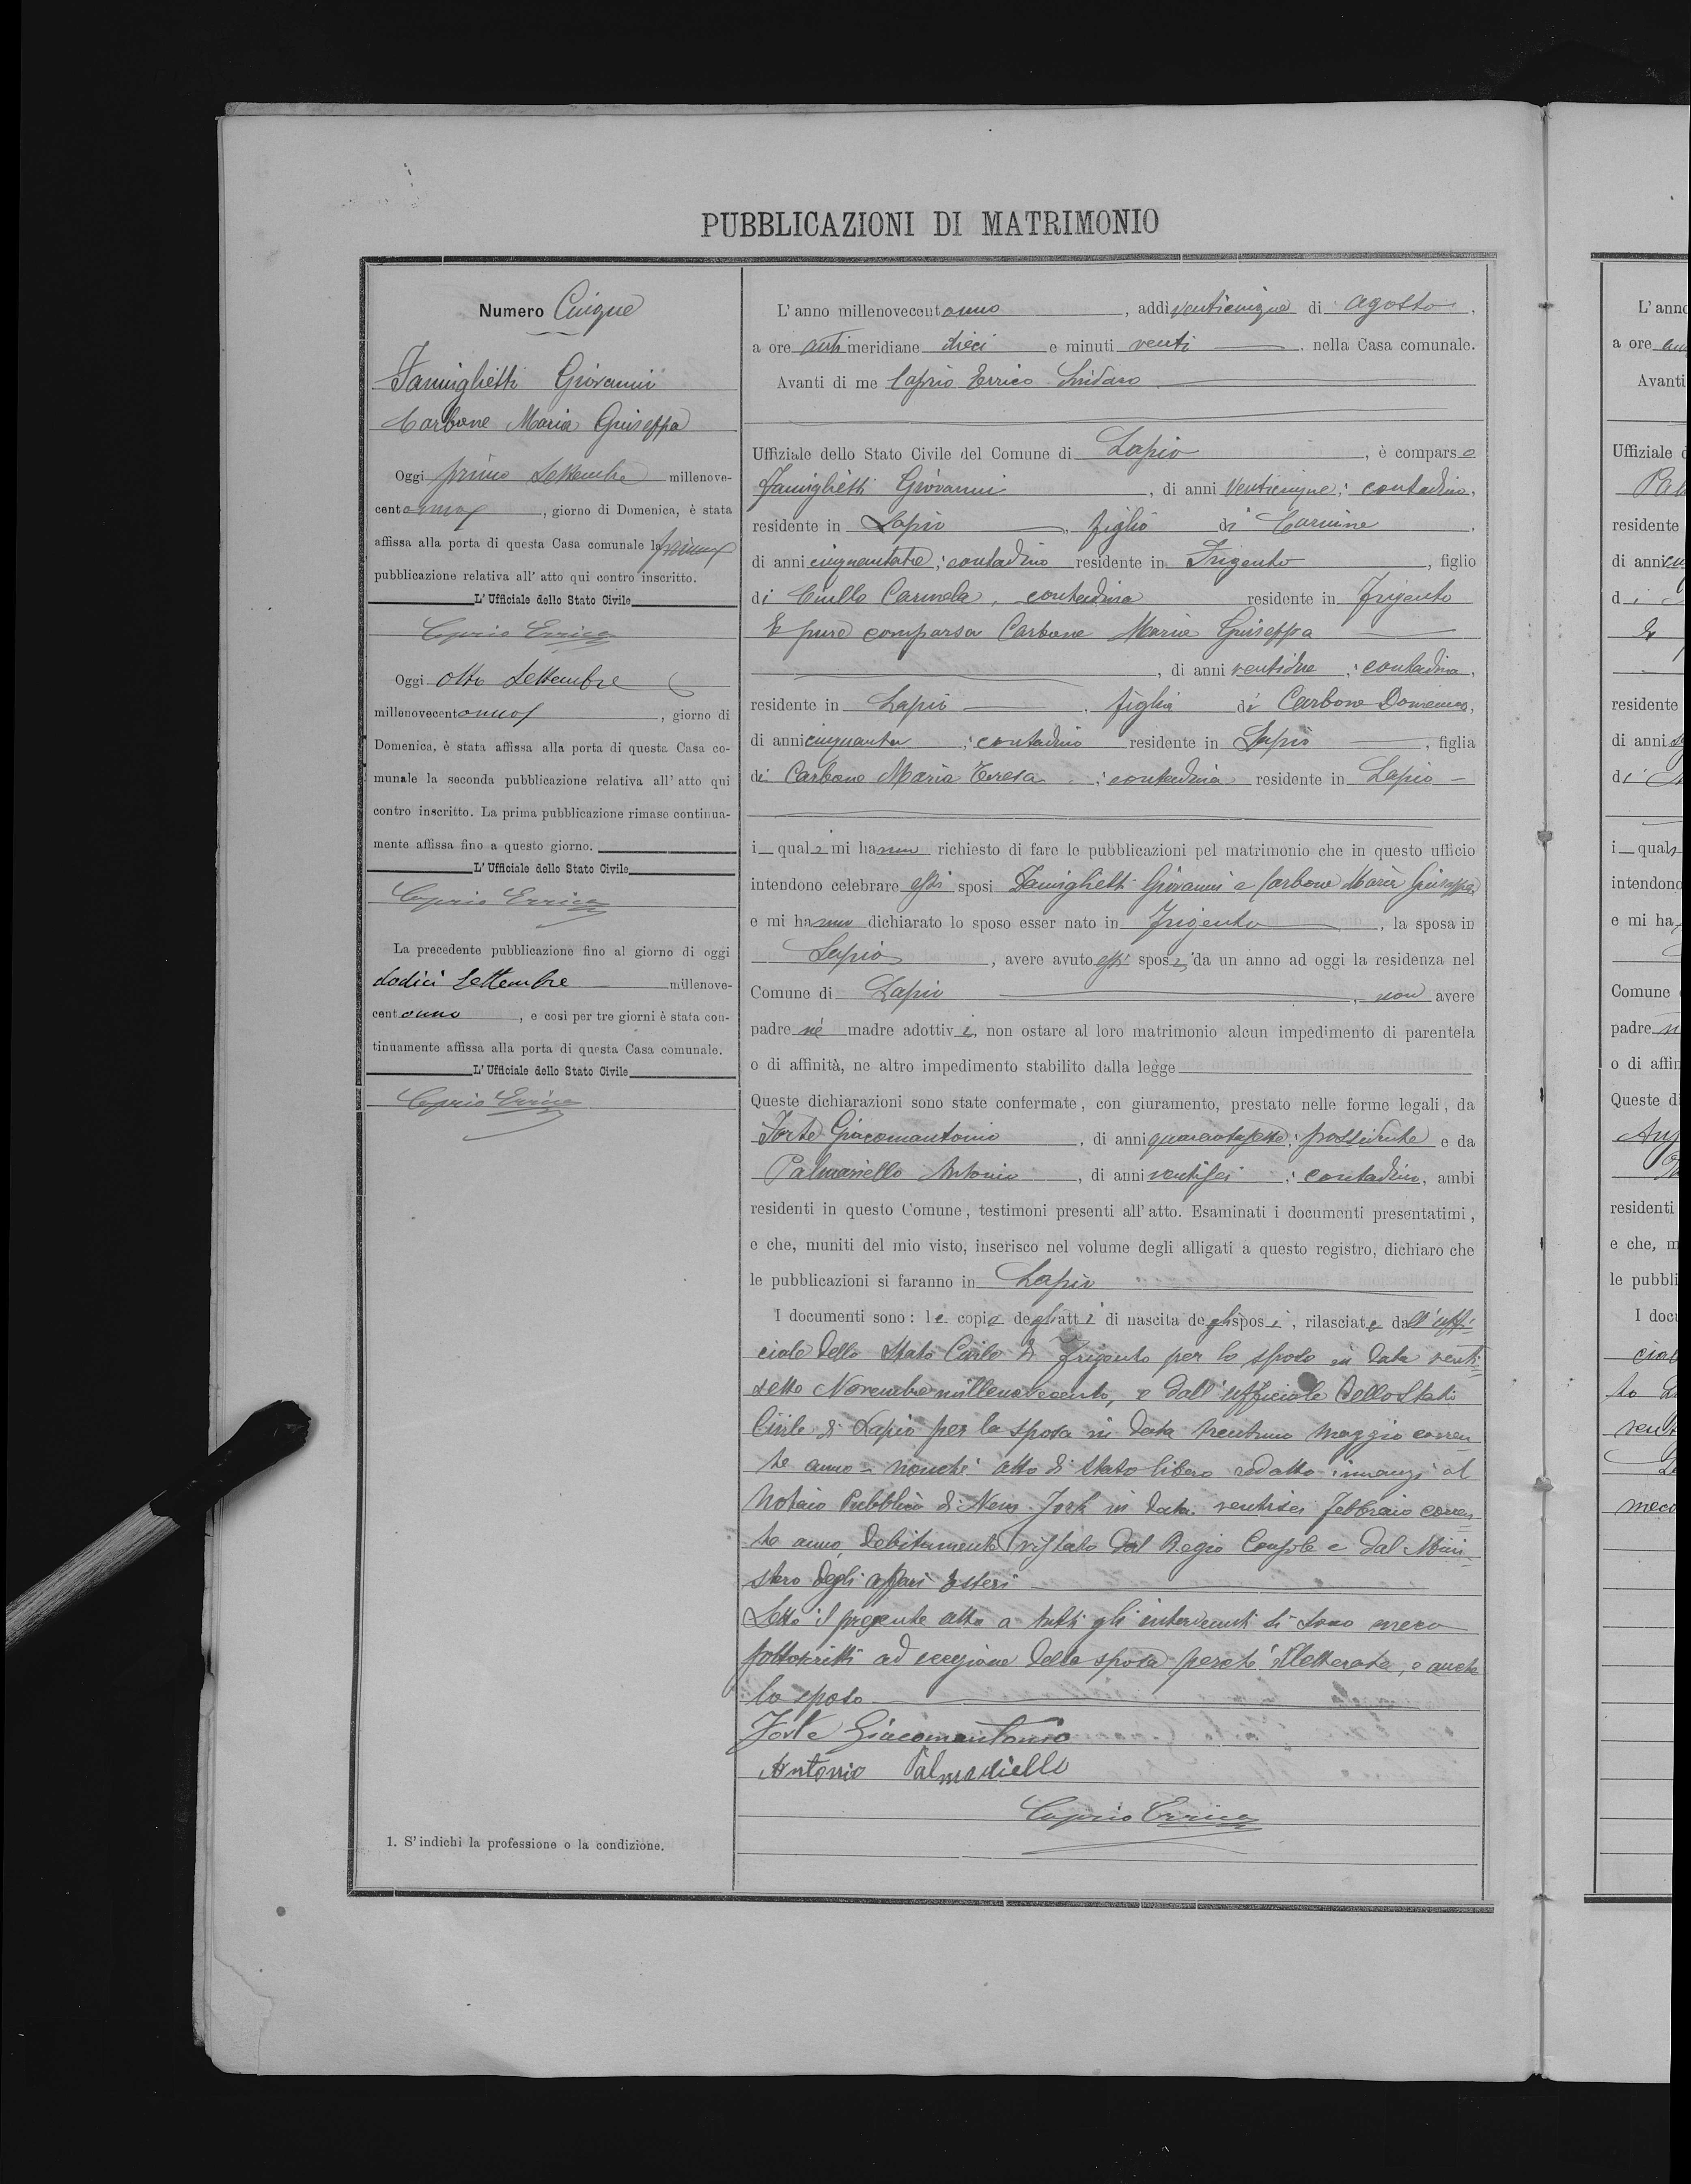 PUBBLICAZIONI DI MATRIMONIO
Numero Cinque
Famiglietti Giovanni
Carbone Maria Giuseppa
Oggi primo Settembre millenove-
centouno, giorno di Domenica, è stata
affissa alla porta di questa Casa comunale la prima
pubblicazione relativa all' atto qui contro inscritto.
L' Ufficiale dello Stato Civile
Caprio Errico
Oggi otto Settembre
millenovecentouno, giorno di
Domenica, è stata affissa alla porta di questa Casa co-
munale la seconda pubblicazione relativa all' atto qui
contro inscritto. La prima pubblicazione rimase continua-
mente affissa fino a questo giorno.
L' Ufficiale dello Stato Civile
Caprio Errico
La precedente pubblicazione fino al giorno di oggi
dodici Settembre millenove-
centouno, e così per tre giorni è stata con-
tinuamente affissa alla porta di questa Casa comunale.
L' Ufficiale dello Stato Civile
Caprio Errico
1. S' indichi la professione o la condizione.
L' anno millenovecentouno, addi venticinque di Agosto,
a ore antimeridiane dieci e minuti venti, nella Casa comunale.
Avanti di me Caprio Errico Sindaco
Uffiziale dello Stato Civile del Comune di Lapio, è comparso
Famiglietti Giovanni, di anni venticinque; contadino,
residente in Lapio, figlio di Carmine,
di anni cinquantatre; contadino residente in Frigento, figlio
di Ciullo Carmela, contadina residente in Frigento
E pure comparsa Carbone Maria Giuseppa
, di anni ventidue; contadina,
residente in Lapio, figlia di Carbone Domenico,
di anni cinquanta; contadino residente in Lapio, figlia
di Carbone Maria Teresa; contadina residente in Lapio
i quali mi hanno richiesto di fare le pubblicazioni pel matrimonio che in questo ufficio
intendono celebrare essi sposi Famiglietti Giovanni e Carbone Maria Giuseppa
e mi hanno dichiarato lo sposo esser nato in Frigento, la sposa in
Lapio, avere avuto essi sposi, da un anno ad oggi la residenza nel
Comune di Lapio, non avere
padre nè madre adottivi, non ostare al loro matrimonio alcun impedimento di parentela
o di affinità, ne altro impedimento stabilito dalla legge
Queste dichiarazioni sono state confermate, con giuramento, prestato nelle forme legali, da
Forte Giacomantonio, di anni quarantasette; possidente e da
Palmariello Antonio, di anni ventisei; contadino, ambi
residenti in questo Comune, testimoni presenti all' atto. Esaminati i documenti presentatimi,
e che, muniti del mio visto, inserisco nel volume degli alligati a questo registro, dichiaro che
le pubblicazioni si faranno in Lapio
I documenti sono: le copie degli atti di nascita degli sposi, rilasciate dall'uffi-
ciale dello Stato Civile di Frigento per lo sposo in data venti-
sette Novembre millenovecento, e dall'ufficiale dello Stato
Civile di Lapio per la sposa in data trentuno Maggio corren-
te anno - nonché atto di stato libero redatto innanzi al
Notaio Pubblico di New-York in data ventisei Febbraio corren-
te anno, debitamente vistato dal Regio Console e dal Mini-
stero degli Affari Esteri
Letto il presente atto a tutti gli intervenuti si sono meco
sottoscritti ad eccezione della sposa perché illetterata, e anche
lo sposo
Forte Giacomantonio
Antonio Palmariello
Caprio Errico
L' anno
a ore
Avanti
Uffiziale
residente
di anni
residente
di anni
i quali
intendono
e mi ha
Comune
padre
o di affin
Queste d
residenti
e che, m
le pubbli
I docu